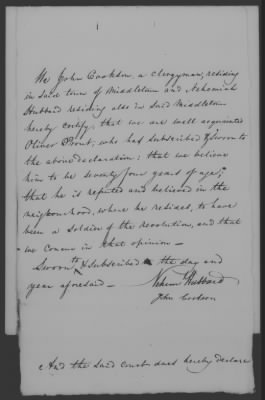 We John Cookson, a clergyman, residing
in said town of Middletown and Nehemiah
Hubbard residing also in said Middletown
hereby certify, that we are well acquainted
Oliver Prout, who has subscribed & sworn to
the above declaration: that we believe
him to be seventy four years of age,
that he is reputed and believed in the
neighbourhood, where he resided, to have
been a soldier of the revolution, and that
we concur in that opinion —
Sworn to & subscribed the day and
year aforesaid —
Nehem Hubbard
John Cookson
And the said court does hereby declare